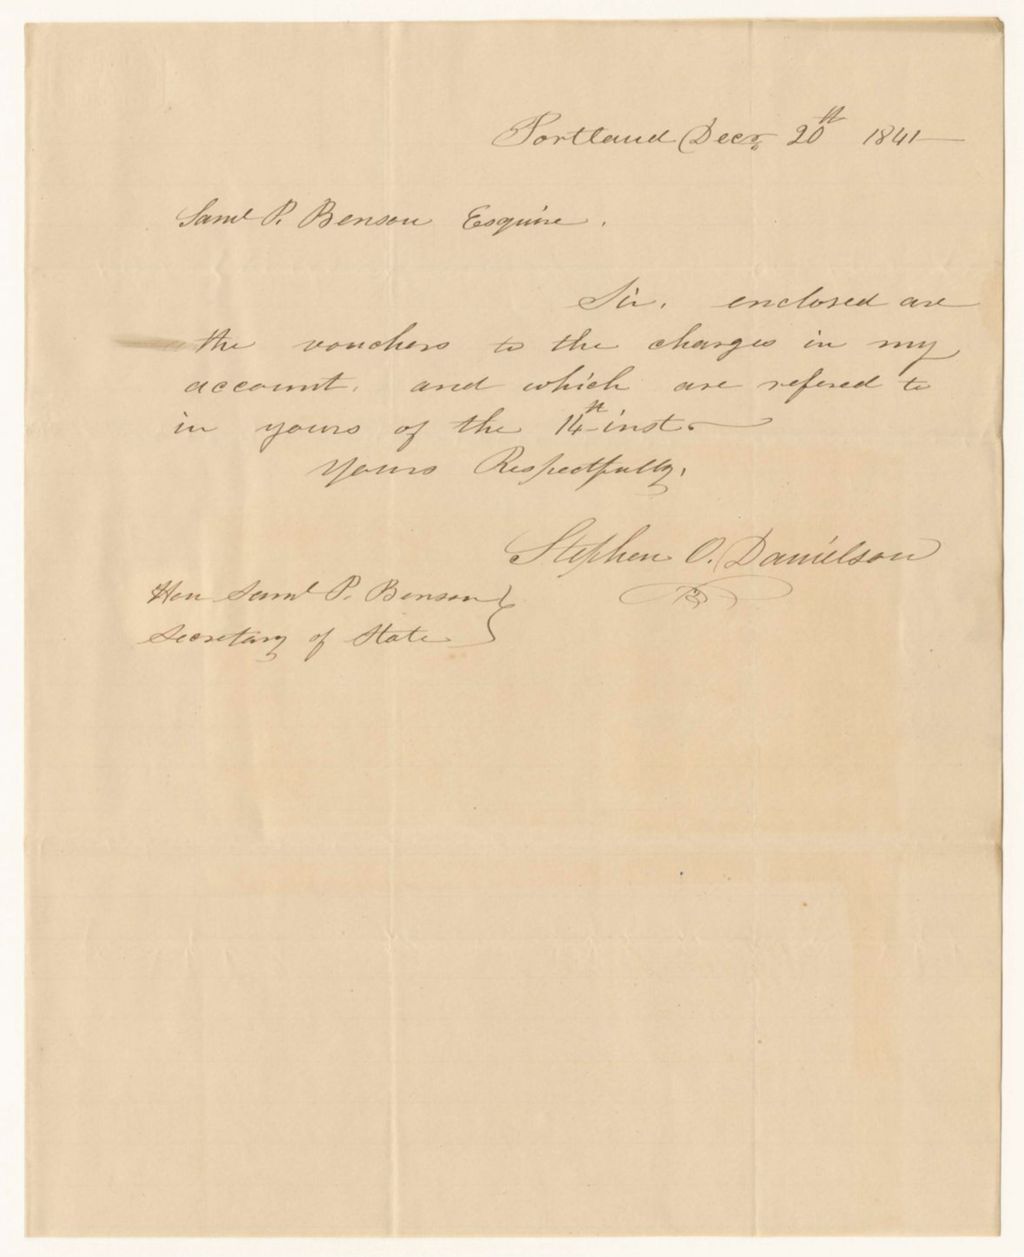 Portland Decr. 20th 1841—
Saml P. Benson Esquire.
Sir, enclosed are
the vouchers to the charges in my
account, and which are refered to
in yours of the 14th inst.
Yours Respectfully,
Stephen O. Danielson
Hon Saml P. Benson
Secretary of State